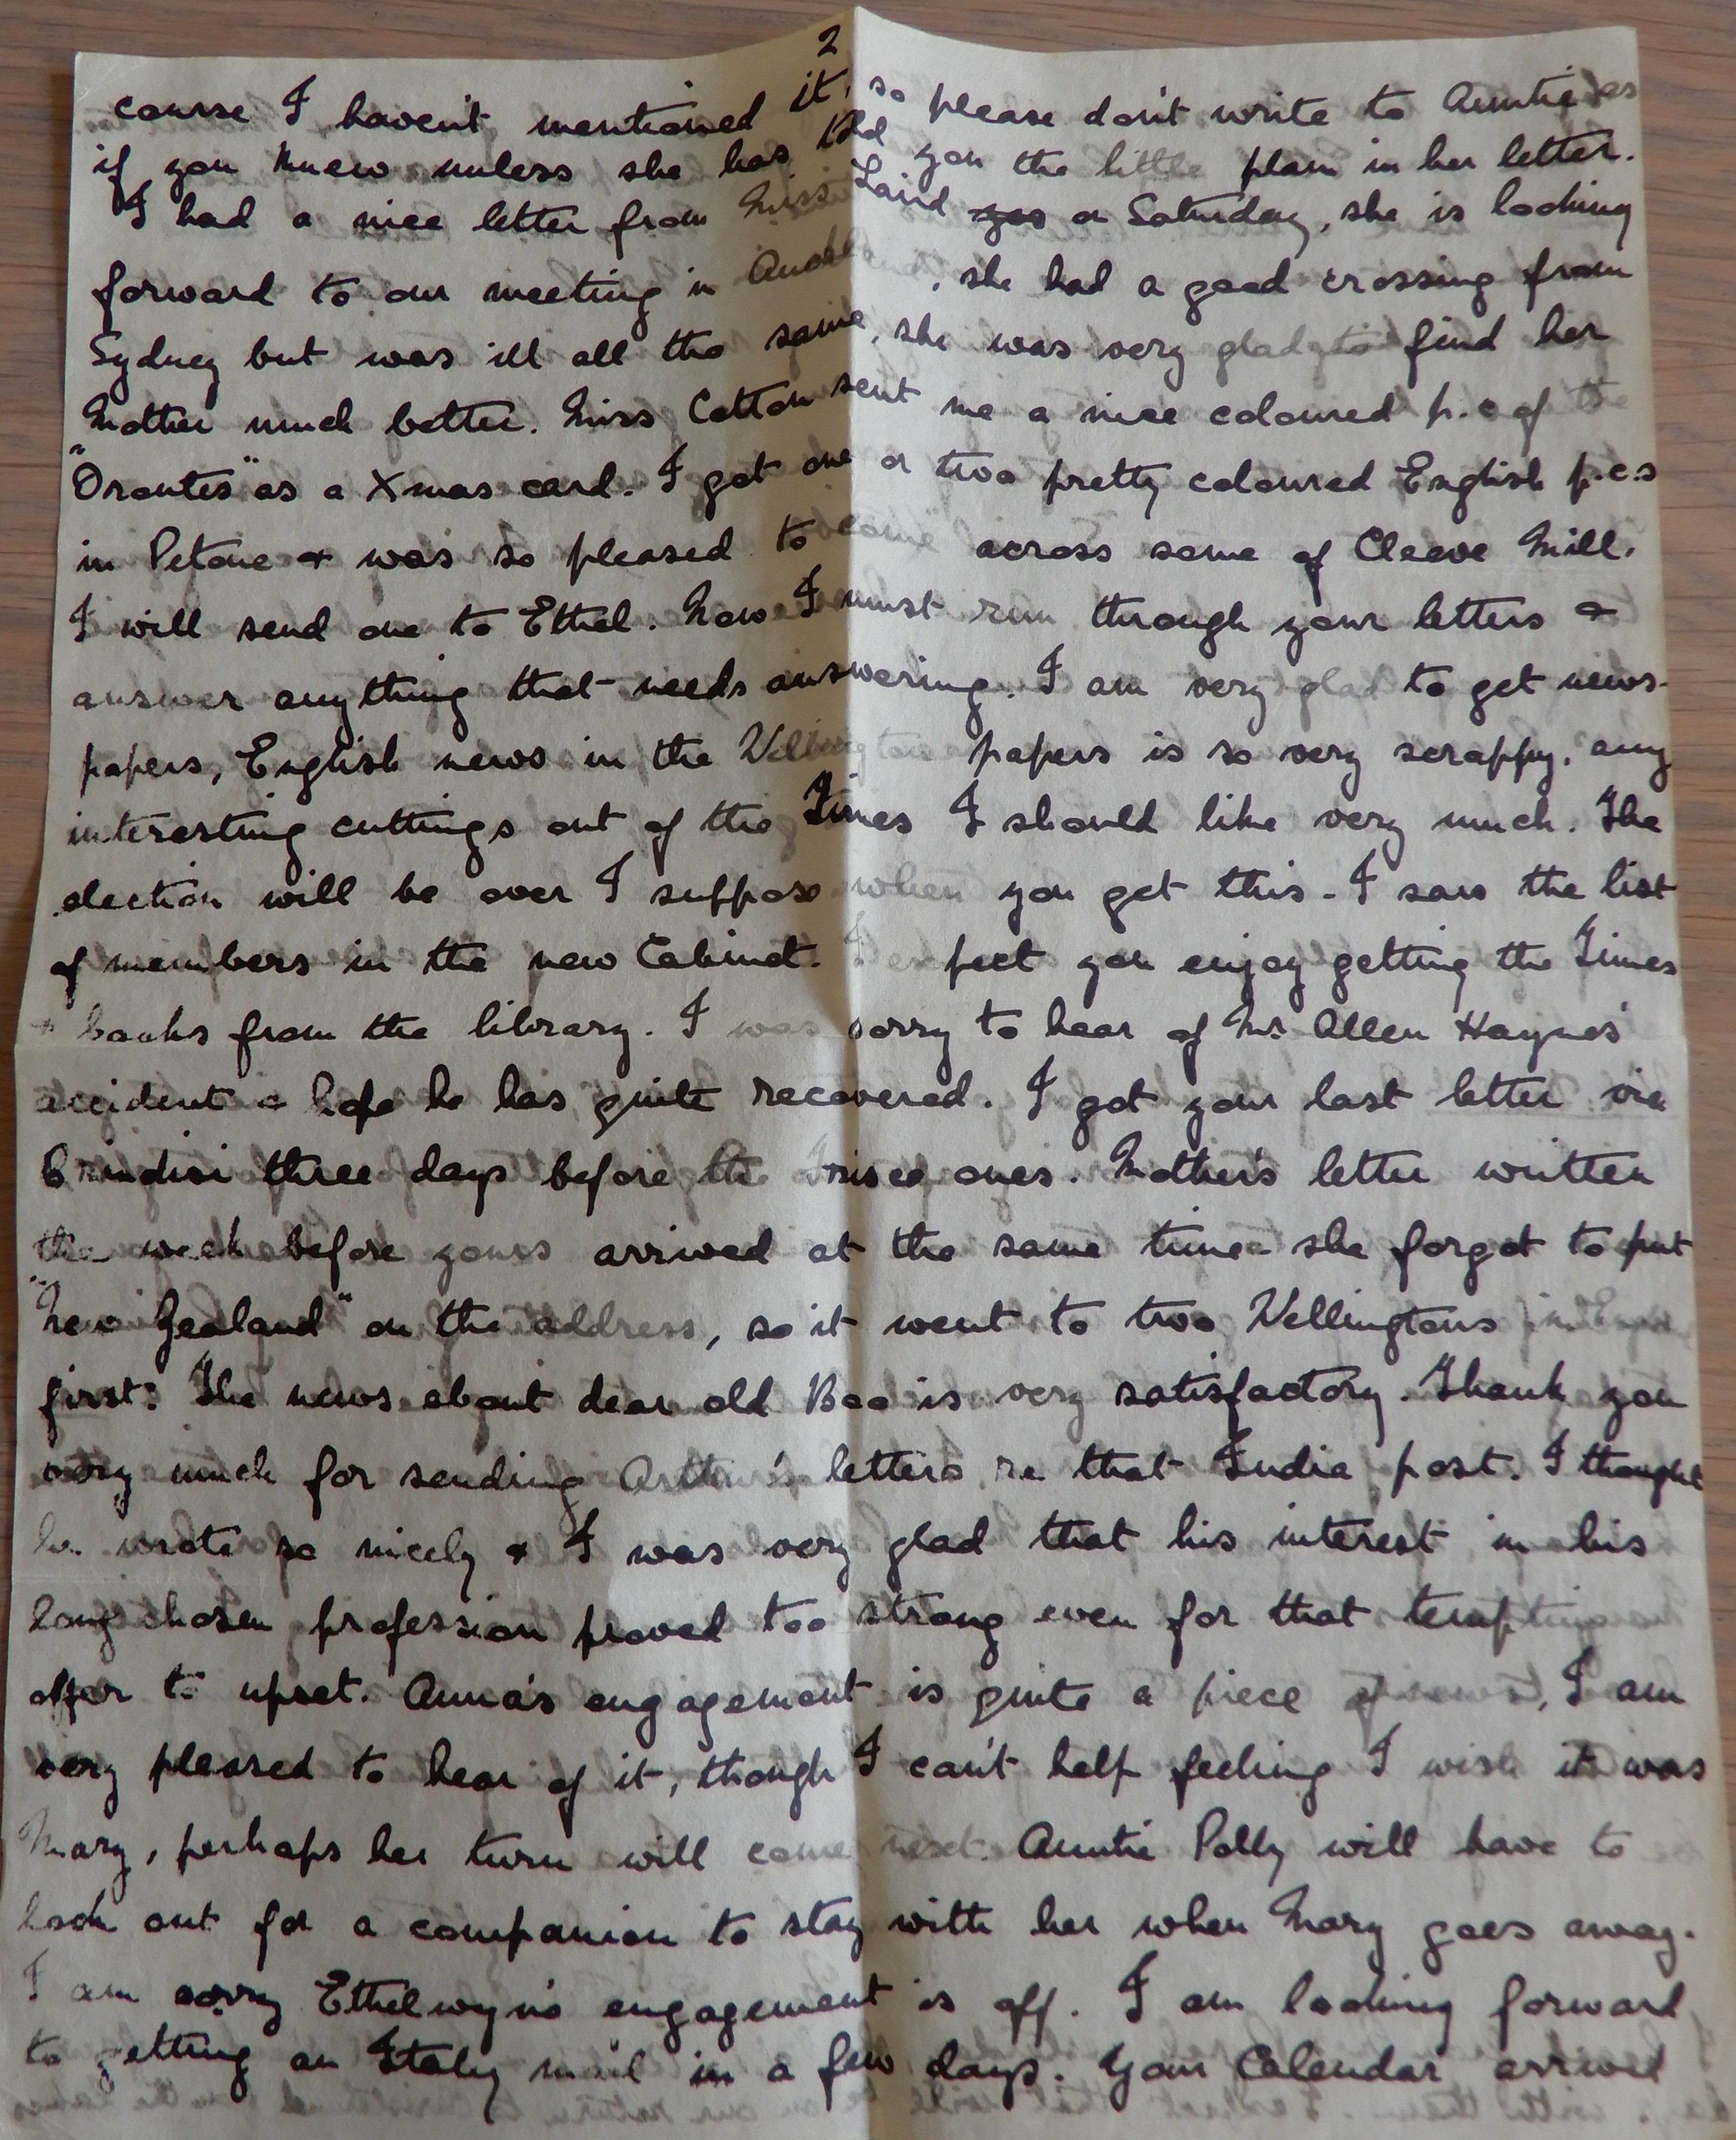 2
course I haven't mentioned it, so please don't write to Auntie as
if you knew unless she has told you the little plan in her letter.
I had a nice letter from Miss Laird yes on Saturday, she is looking
forward to our meeting in Auckland, she had a good crossing from
Sydney but was ill all the same, she was very glad to find her
Mother much better. Miss Cotton sent me a nice coloured p.c of the
"Orontes" as a Xmas card. I got one or two pretty coloured English p.c.s
in Petone & was so pleased to come across some of Cleeve Mill.
I will send one to Ethel. Now I must run through your letters &
answer anything that needs answering. I am very glad to get news-
papers, English news in the Wellington papers is so very scrappy. any
interesting cuttings out of the Times I should like very much. The
election will be over I suppose when you get this - I saw the list
of members in the new Cabinet. I expect you enjoy getting the Times
& books from the library. I was sorry to hear of Mr. Allen Haynes'
accident & hope he has quite recovered. I got your last letter via
Brindisi three days before the ones. Mother's letter written
the week before yours arrived at the same time she forgot to put
"New Zealand" on the address, so it went to two Wellingtons in
first. The news about dear old Boo is very satisfactory. Thank you
very much for sending Arthur's letters re that India post. I thought
he wrote so nicely & I was very glad that his interest in his
long chosen profession proved too strong even for that tempting
offer to upset. Anna's engagement is quite a piece of news, I am
very pleased to hear of it, though I can't help feeling I wish it was
Mary, perhaps her turn will come next. Auntie Polly will have to
look out for a companion to stay with her when Mary goes away.
I am sorry Ethelwyn's engagement is off. I am looking forward
to getting an Italy mail in a few days. Your Calendar arrived